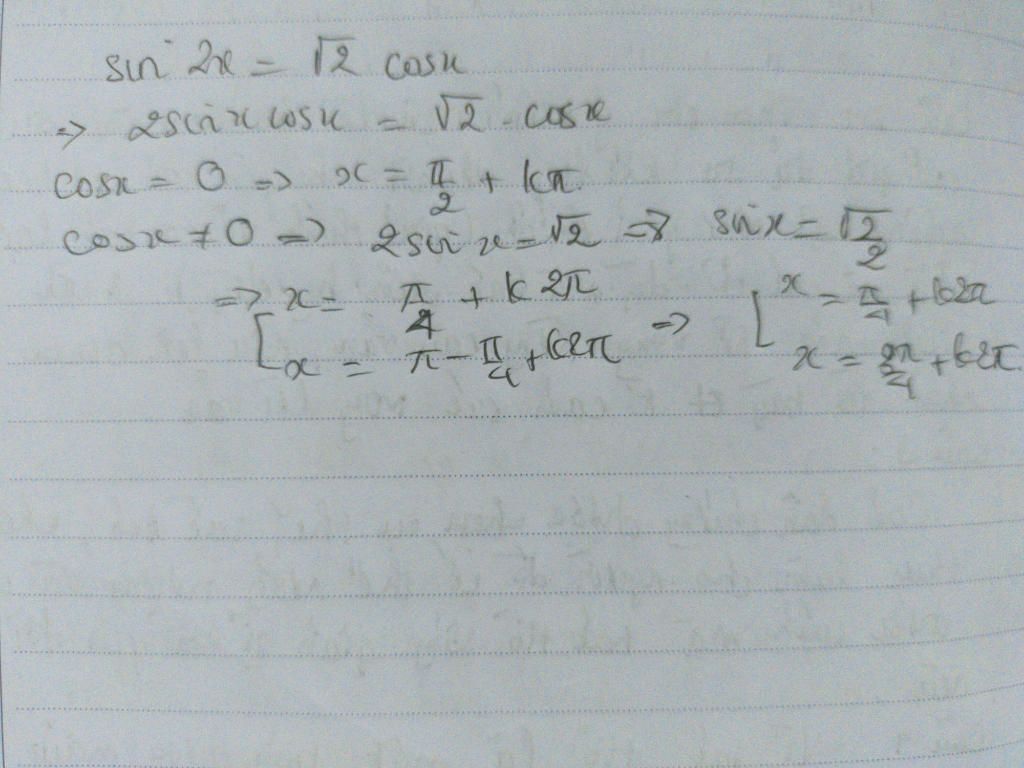 sin 2x = √2 cosx
=> 2sinxcosx = √2 . cosx
cosx = 0 => x = π/2 + kπ.
cosx ≠ 0 => 2sinx = √2 => sinx = √2/2
=> [ x = π/4 + k2π => [ x = π/4 + k2π
x = π - π/4 + k2π x = 3π/4 + k2π.